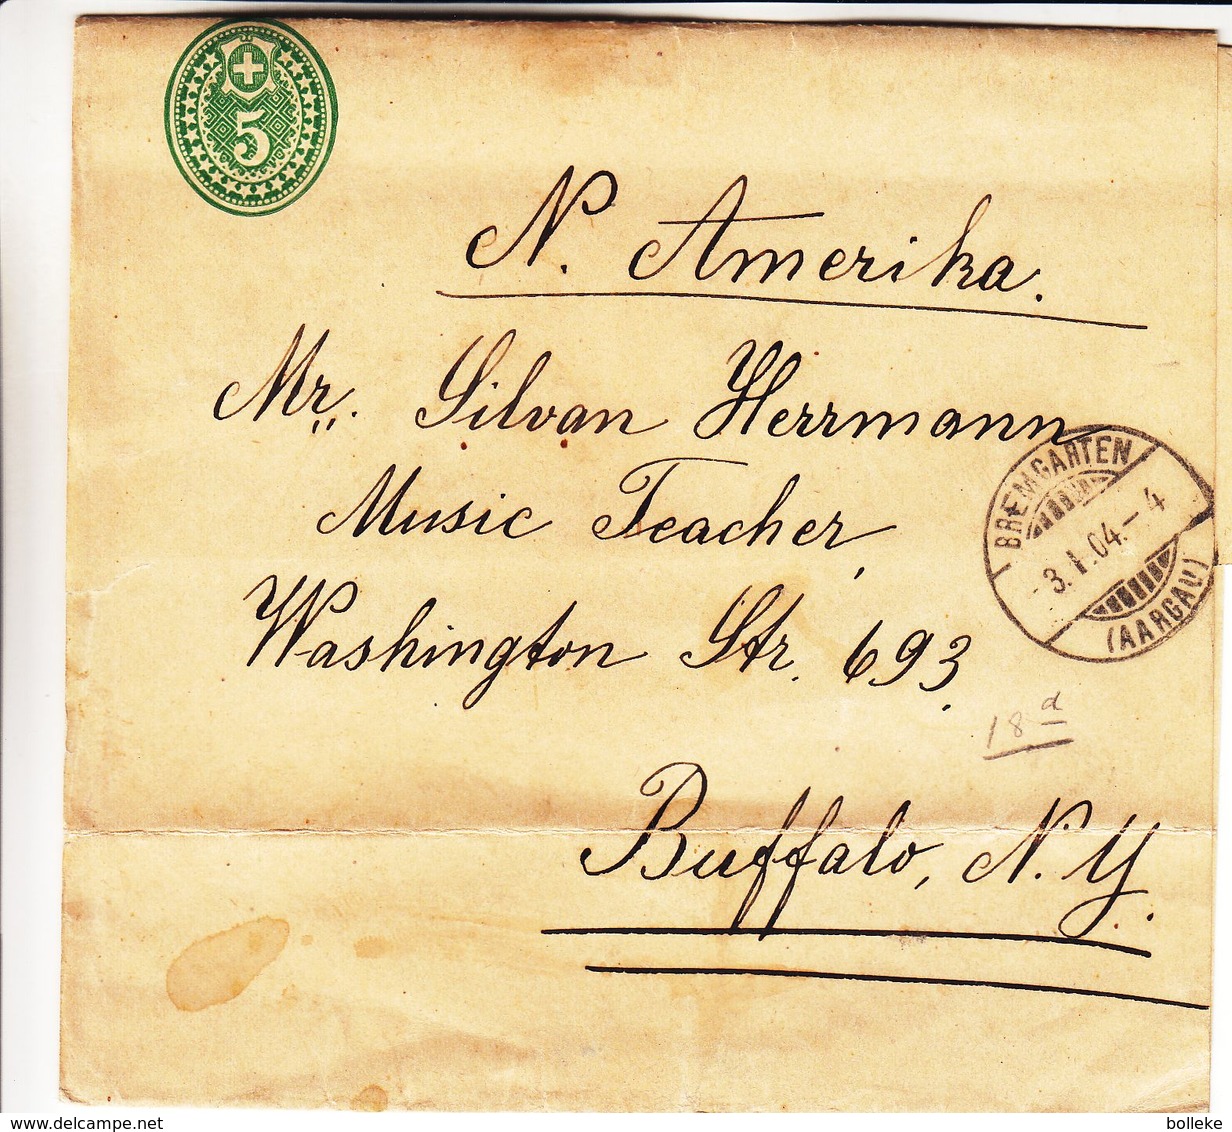 5
N. Amerika.
Mr. Silvan Herrmann
Music Teacher,
Washington Str. 693.
BREMGARTEN
3.I.04.-4
(AARGAU)
18 d
Buffalo, N.Y.
delcampe.net
bolleke